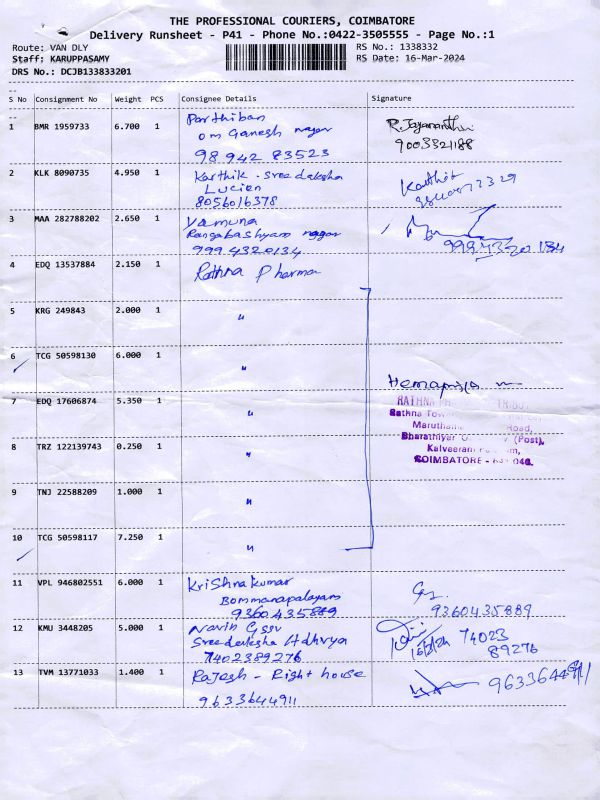 THE PROFESSIONAL COURIERS, COIMBATORE
Delivery Runsheet - P41 - Phone No.:0422-3505555 - Page No.:1
Route: VAN DLY
Staff: KARUPPASAMY
DRS No.: DCJB133833201
RS No.: 1338332
RS Date: 16-Mar-2024
S No Consignment No Weight PCS Consignee Details Signature
1 BMR 1959733 6.700 1 Parthiban R.Jayamanthi
om Ganesh nagar 900332188
98 942 83523
2 KLK 8090735 4.950 1 Karthik - Sree daksha Karthik
Lucien
8056016378
3 MAA 282788202 2.650 1 Yamuna
Rangabashyam nagar
9994320134 9994320134
4 EDQ 13537884 2.150 1 Rathna Pharma
5 KRG 249843 2.000 1 "
6 TCG 50598130 6.000 1 "
Hemapriya
7 EDQ 17606874 5.350 1 "
RATHNA
Rathna
Road,
Bharathiyar (Post),
8 TRZ 122139743 0.250 1 "
COIMBATORE - 641 046.
9 TNJ 22588209 1.000 1 "
10 TCG 50598117 7.250 1 "
11 VPL 946802551 6.000 1 Krishnakumar
Bommanapalayam
9360435889 9360435889
12 KMU 3448205 5.000 1 Navin Gssv
Sreedaksha Adhvya 15/3/24 74023
7402389276 89276
13 TVM 13771033 1.400 1 Rajesh - Right house
9633644911 9633644911